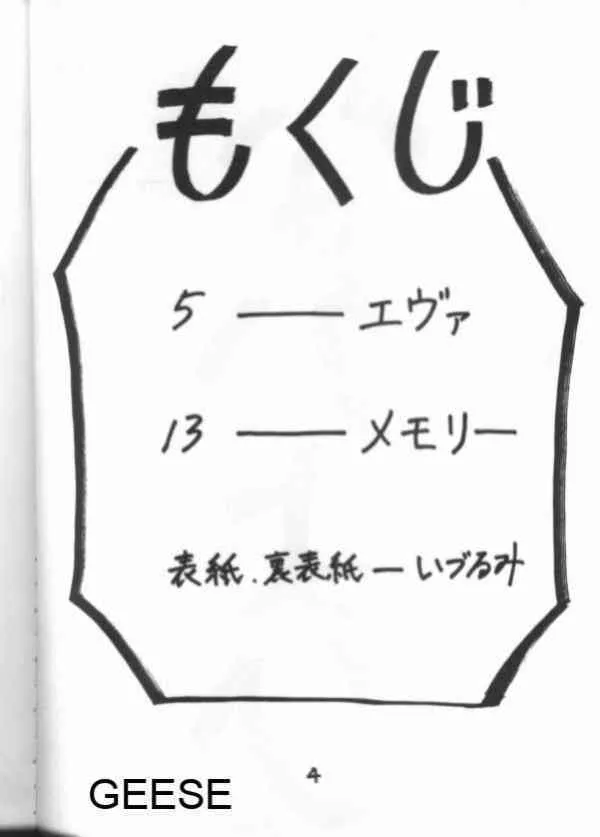 もくじ
5 — エヴァ
13 — メモリー
表紙、裏表紙 — いづるみ
4
GEESE